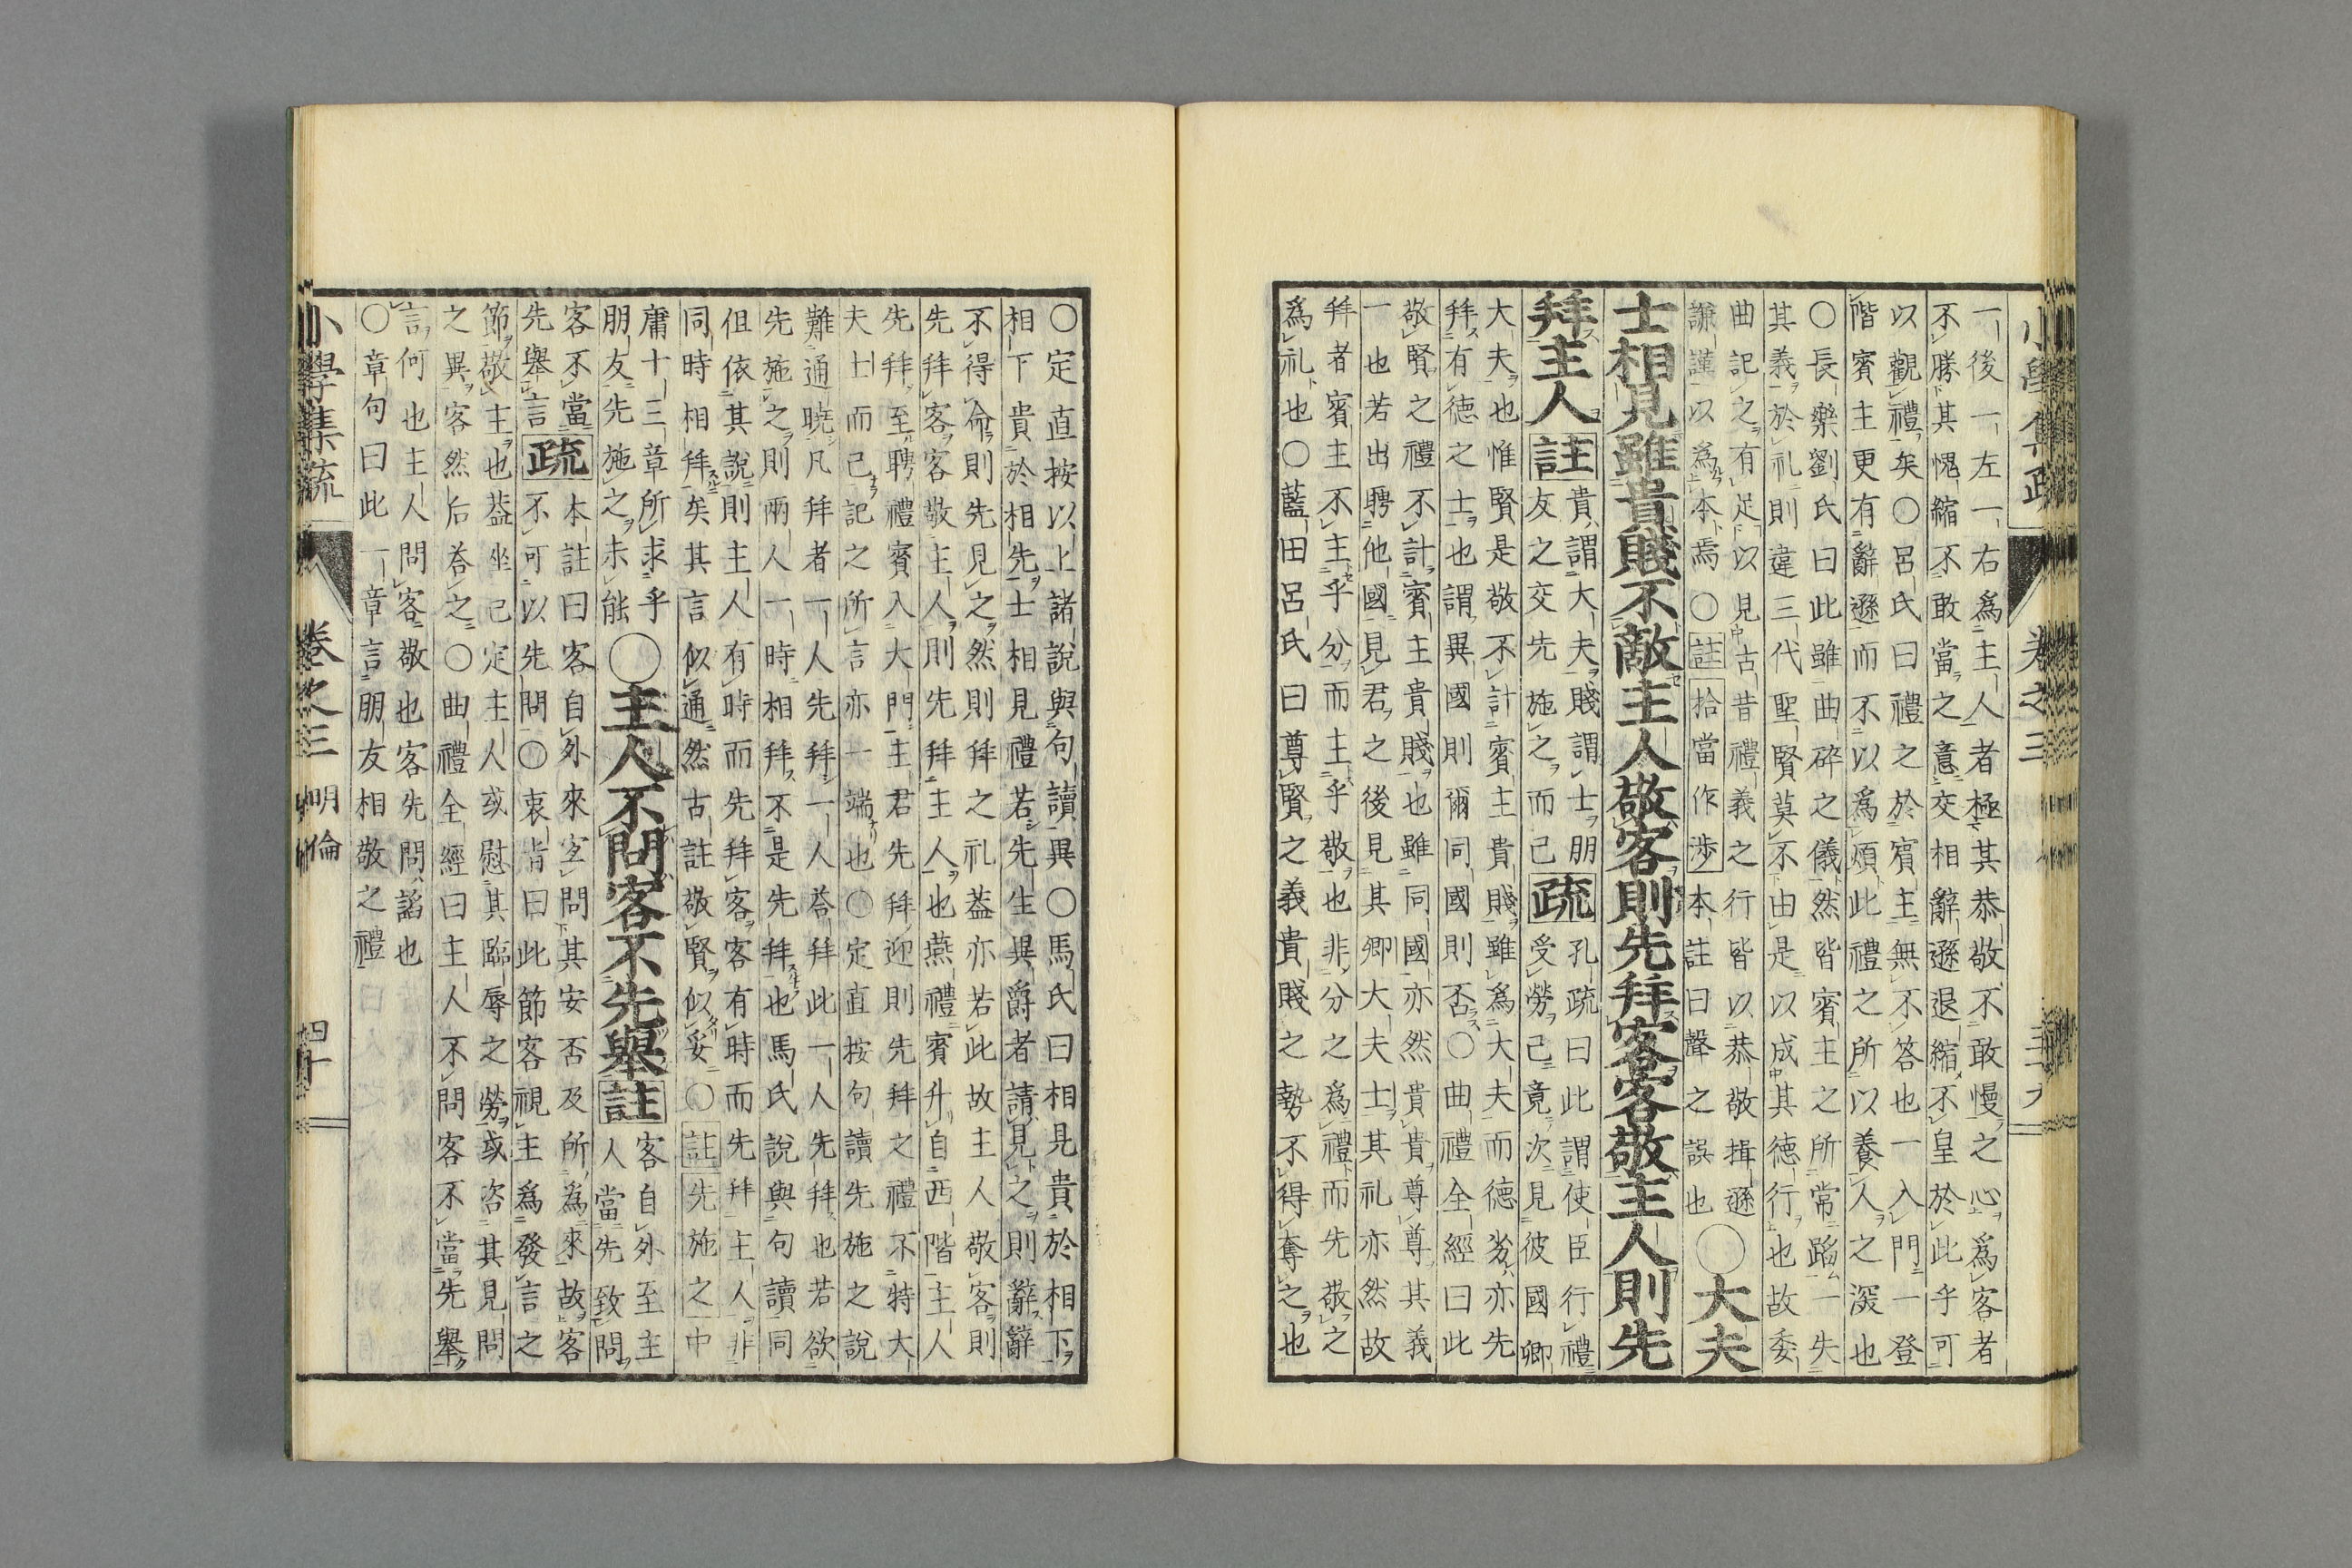 小學集疏 卷之三
一後一左一右爲主人者極其恭敬不敢慢之心爲客者
不勝其愧縮不敢當之意交相辭遜退縮不皇於此乎可
以觀禮矣○呂氏曰禮之於賓主無不答也一入門一登
階賓主更有辭遜而不以爲煩此禮之所以養人之深也
○長樂劉氏曰此雖曲碎之儀然皆賓主之所常蹈一失
其義於礼則違三代聖賢莫不由是以成其德行也故委
曲記之有足以見古昔禮義之行皆以恭敬揖遜
謙謹以爲本焉○註拾當作渉本註曰聲之誤也
○大夫
士相見雖貴賤不敵主人敬客則先拜客客敬主人則先
拜主人註
貴謂大夫賤謂士朋
友之交先施之而已
疏
孔疏曰此謂使臣行禮
受勞已竟次見彼國卿
大夫也惟賢是敬不計賓主貴賤雖爲大夫而德劣亦先
拜有德之士也謂異國則爾同國則否○曲禮全經曰此
敬賢之禮不計賓主貴賤也雖同國亦然貴貴尊尊其義
一也若出聘他國見君之後見其卿大夫士其礼亦然故
拜者賓主不主乎分而主乎敬也非分之爲禮而先敬之
爲礼也○藍田呂氏曰尊賢之義貴賤之勢不得奪之也
○定直按以上諸說與句讀異○馬氏曰相見貴於相下
相下貴於相先士相見禮若先生異爵者請見之則辭辭
不得命則先見之然則拜之礼蓋亦若此故主人敬客則
先拜客客敬主人則先拜主人也燕禮賓升自西階主人
先拜至聘禮賓入大門主君先拜迎則先拜之禮不特大
夫士而已記之所言亦一端也○定直按句讀先施之說
難通曉凡拜者一人先拜一人荅拜此一人先拜也若欲
先施之則兩人一時相拜不是先拜也馬氏說與句讀同
但依其說則主人有時而先拜客客有時而先拜主人非
同時相拜矣其言似通然古註敬賢似妥○註先施之中
庸十三章所求乎
朋友先施之未能
○主人不問客不先舉註
客自外至主
人當先致問
客不當
先舉言
疏
本註曰客自外來宜問其安否及所爲來故客
不可以先問○衷旨曰此節客視主爲發言之
節敬主也葢坐已定主人或慰其臨辱之勞或咨其見問
之異客然后荅之○曲禮全經曰主人不問客不當先舉
言何也主人問客敬也客先問諂也
○章句曰此一章言朋友相敬之禮
小學集疏 卷之三 明倫 四十